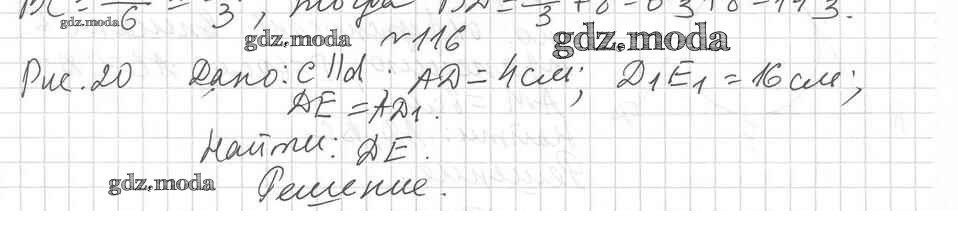 gdz.moda
gdz.moda № 116 gdz.moda
Рис. 20 Дано: c || d. AD = 4 см; D₁E₁ = 16 см;
DE = AD₁.
Найти: DE.
gdz.moda Решение.